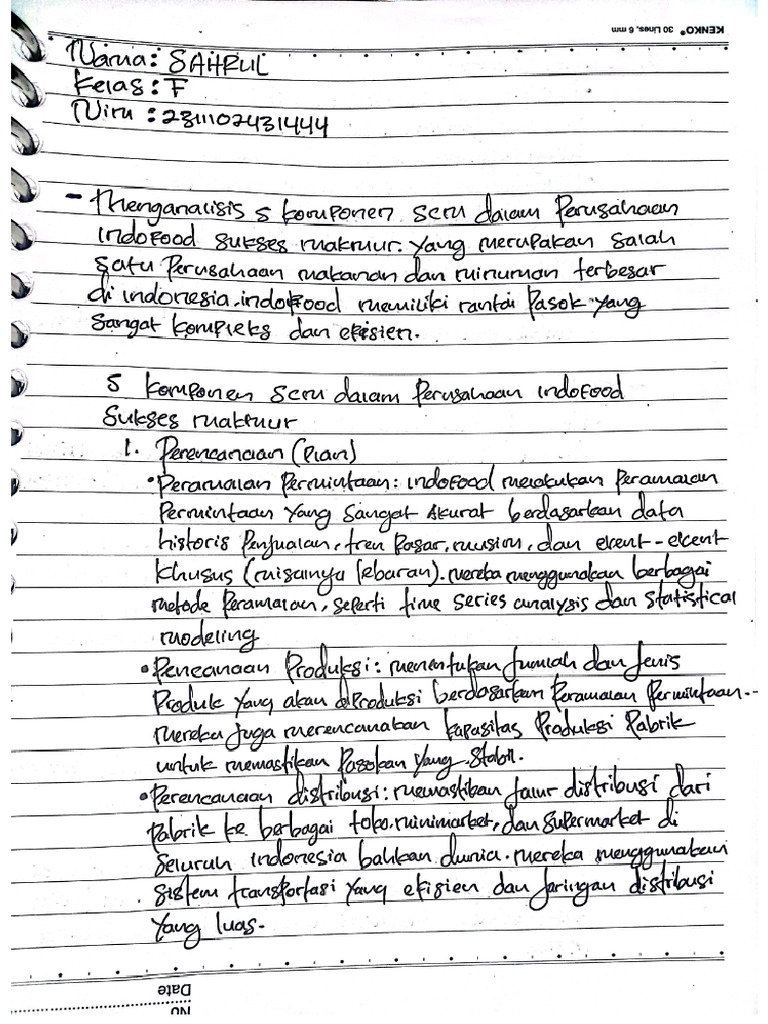 KENKO® 30 Lines, 6 mm
Nama : SAHRUL
Kelas : F
Nim : 2311102431444
- Menganalisis 5 komponen scm dalam Perusahaan
indoFood sukses makmur. yang merupakan salah
satu Perusahaan makanan dan minuman terbesar
di indonesia. indoFood memiliki rantai Pasok yang
Sangat kompleks dan efisien.
5 komponen scm dalam Perusahaan indoFood
Sukses makmur
1. Perencanaan (Plan)
• Peramalan Permintaan : indoFood melakukan Peramalan
Permintaan yang sangat akurat berdasarkan data
historis Penjualan, tren Pasar, musim, dan event-event
khusus (misalnya lebaran). mereka menggunakan berbagai
metode Peramalan, seperti time series analysis dan statistical
modeling
• Pencanaan Produksi : menentukan Jumlah dan Jenis
Produk yang akan diProduksi berdasarkan Peramalan Permintaan..
mereka Juga merencanakan kapasitas Produksi Pabrik
untuk memastikan Pasokan yang stabil.
• Perencanaan distribusi : memastikan Jalur distribusi dari
Pabrik ke berbagai toko, minimarket, dan supermarket di
seluruh indonesia bahkan dunia. mereka menggunakan
sistem transportasi yang efisien dan Jaringan distribusi
yang luas.
Date
No